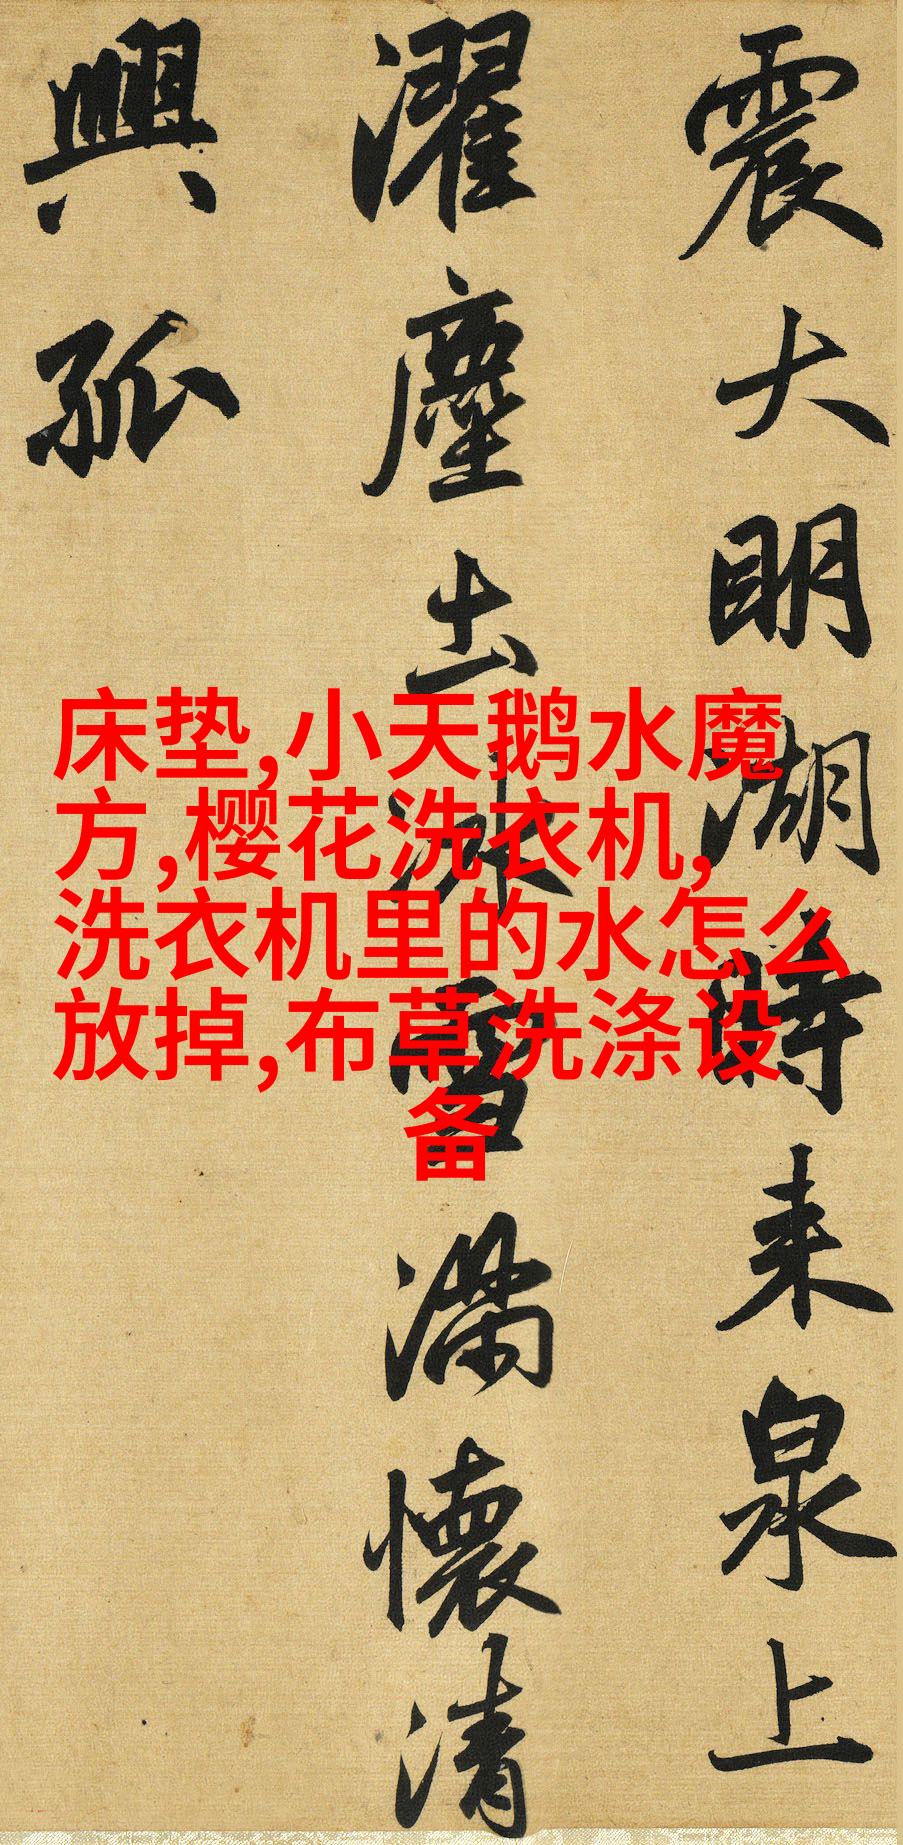 震大明湖時来泉上
濯塵土冰雪滿懷清
興孤
床垫,小天鹅水魔
方,樱花洗衣机,
洗衣机里的水怎么
放掉,布草洗涤设
备